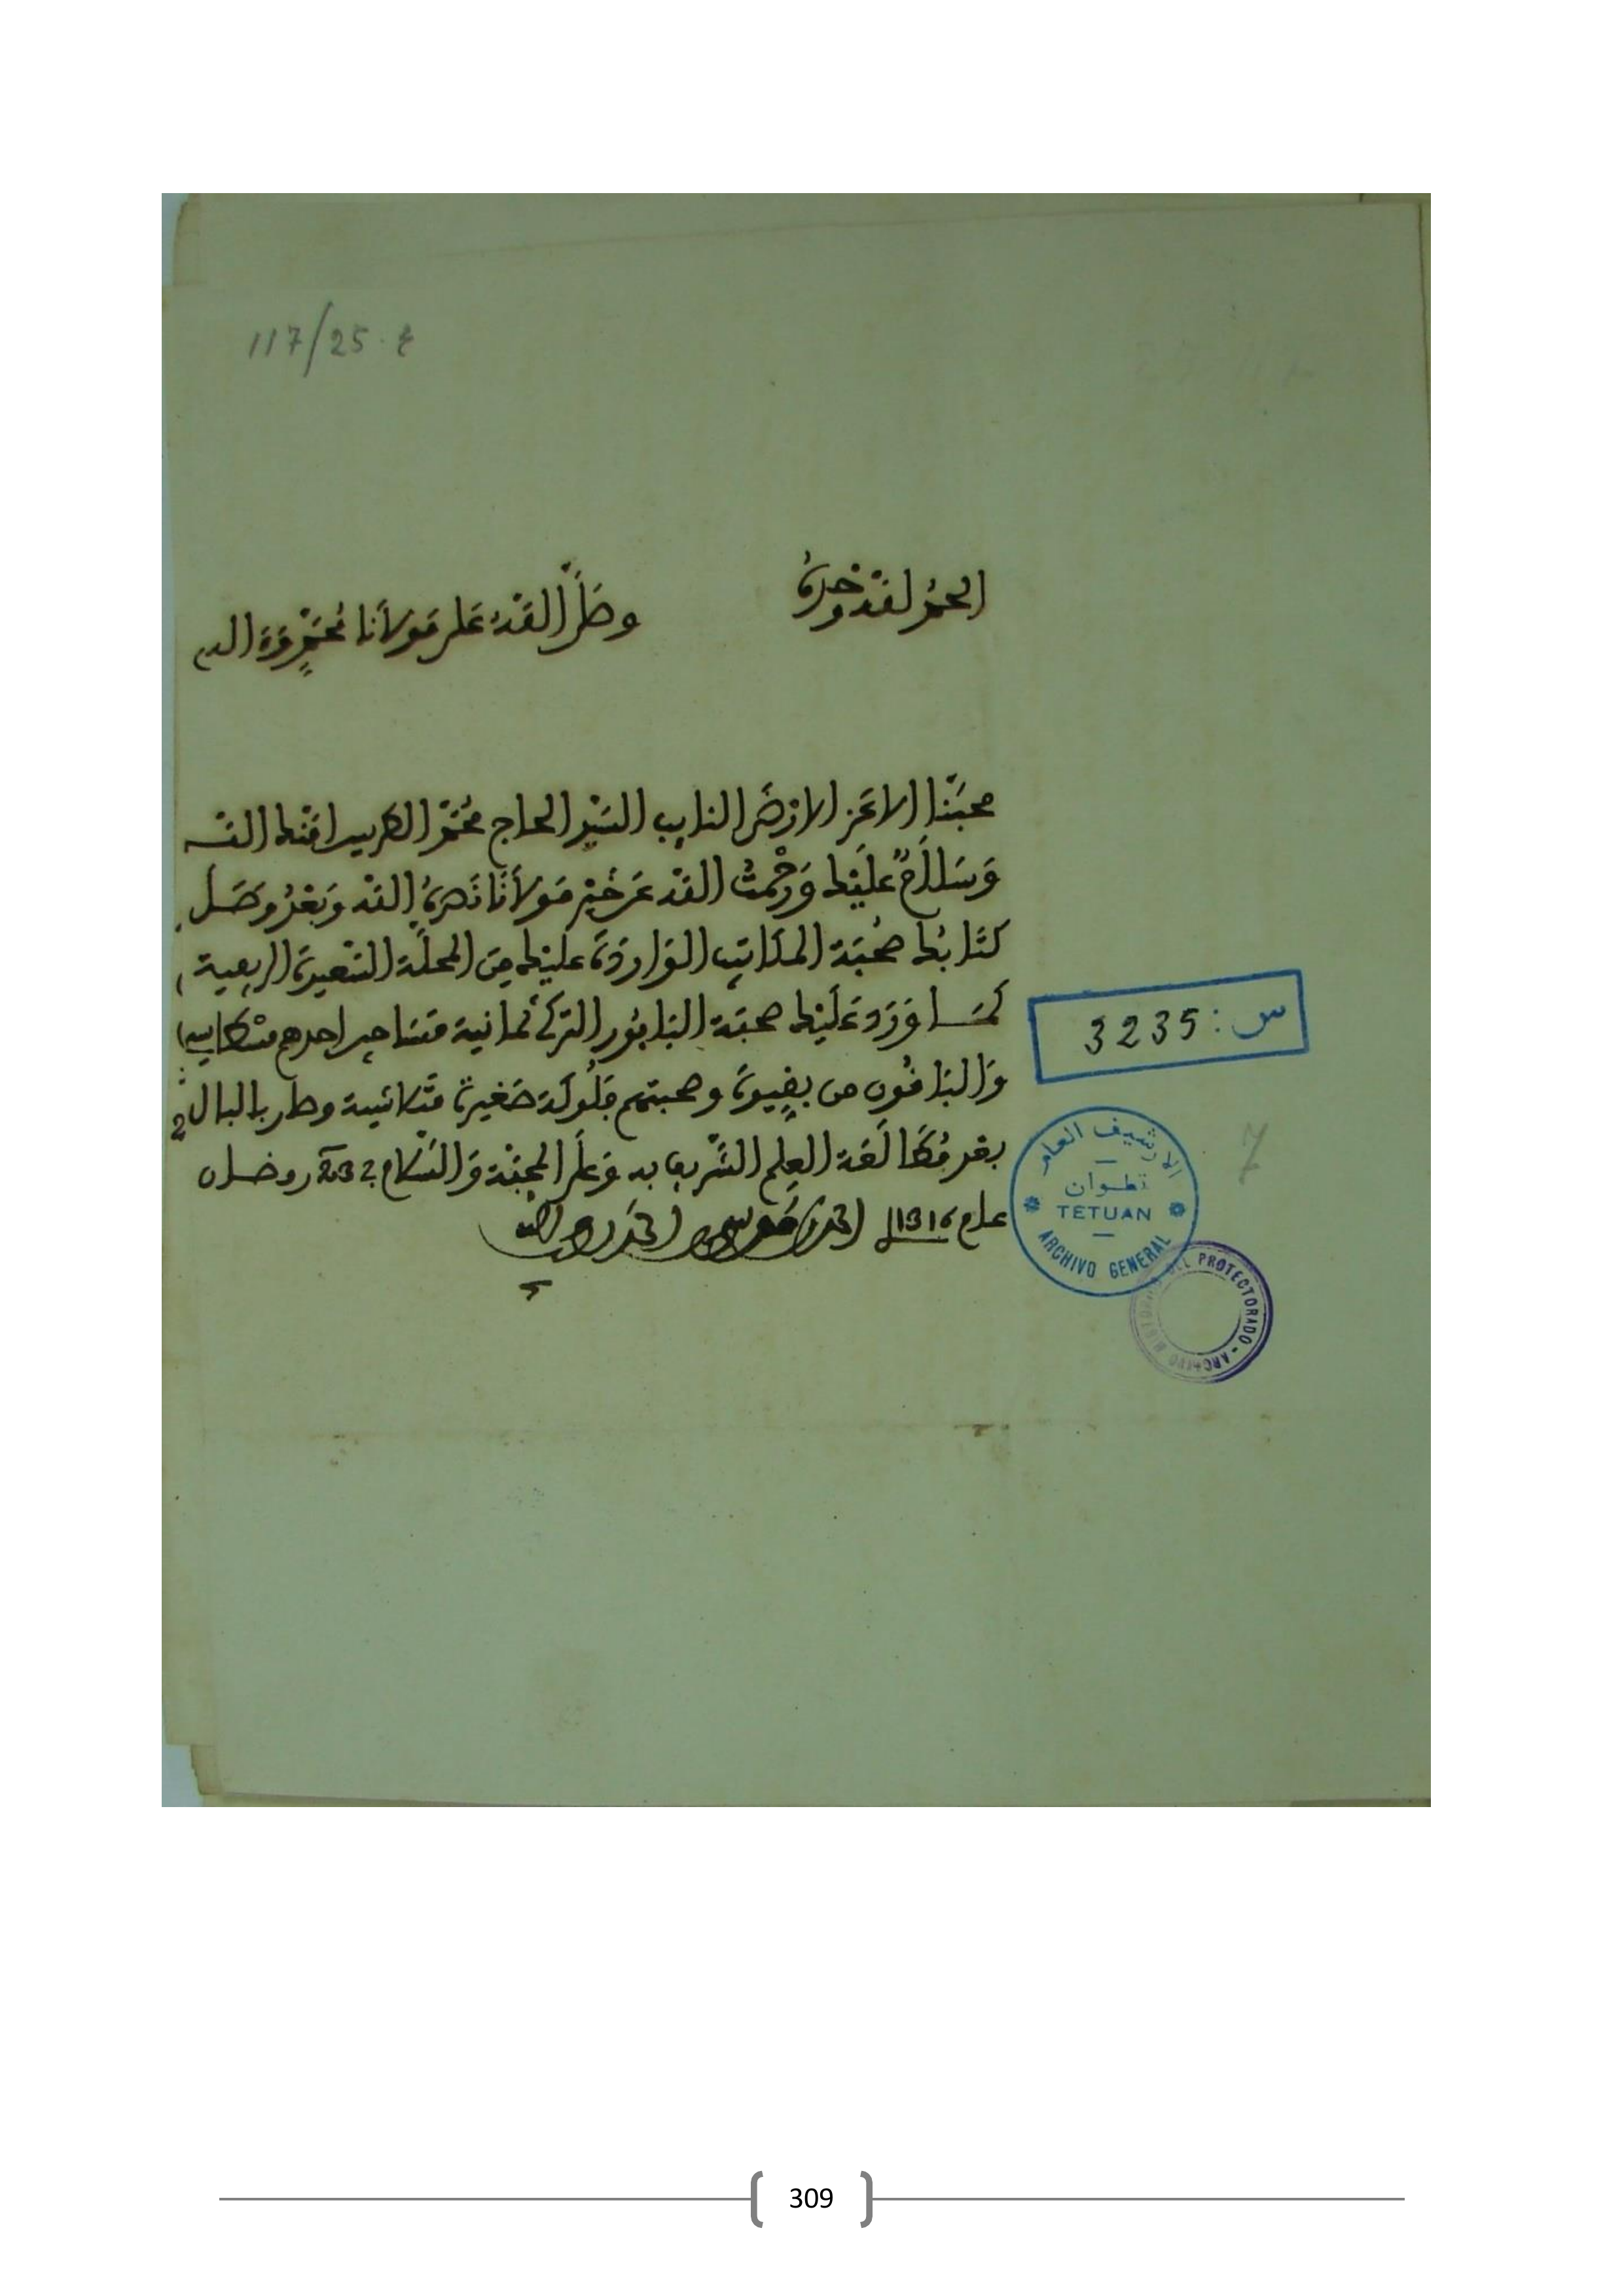 117/25.ع
الحمد لله وحده
وصلى الله على مولانا محمد وءاله
محبنا الاعز الارضى النايب السيد الحاج محمد الطريس امنك الله
وَسَلَامٌ عليك وَرَحْمتُ الله عن خير مَوْلَانَا نَصرهُ الله وَبَعْدُ وصَل
كتَابُك صُحْبَة المكَاتِب الوَاردَة عليك مِنَ المحلّة السّعيدة الريفية
كَمَا وَرَدَ عَلَيْك صحبَة البَابُور التركي ثمانية مسَاجين احدهم
وَالبَاقُون من بقيوة وصحبتهم فلُوكَة صَغيرة وصار بالبال
بعد مُطَالَعَة العِلم الشّريف به وَعَلَى المحبّة وَالسّلام في 23 رمضان
عام 1316 احمد بن موسى بن احمد
س: 3235
الارشيف العام
تطوان
TETUAN
ARCHIVO GENERAL
DEL PROTECTORADO - ARCHIVO
7
309